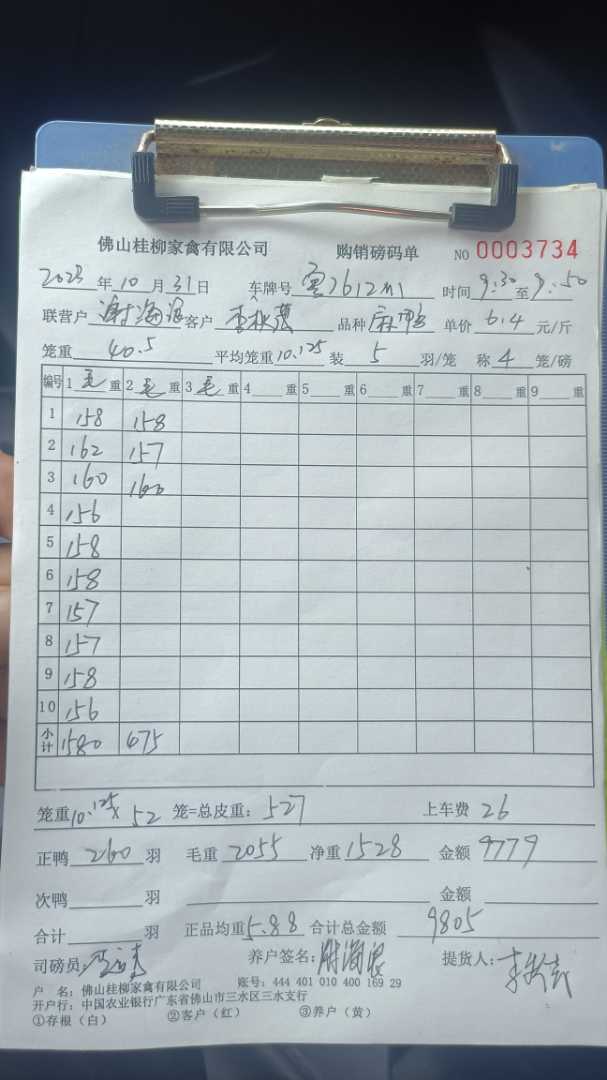 佛山桂柳家禽有限公司 购销磅码单 NO 0003734
2023年10月31日 车牌号 7612 时间 9:30至9:50
联营户 谢海 客户 李 品种 麻鸭 单价 6.4 元/斤
笼重 40.5 平均笼重 10.125 装 5 羽/笼 称 4 笼/磅
编号 1 毛 重 2 毛 重 3 毛 重 4 重 5 重 6 重 7 重 8 重 9 重
1 158 158
2 162 157
3 160 160
4 156
5 158
6 158
7 157
8 157
9 158
10 156
小计 1580 475
笼重 10.125 x 52 笼=总皮重: 527 上车费 26
正鸭 260 羽 毛重 2055 净重 1528 金额 9779
次鸭 羽 金额
合计 羽 正品均重 5.88 合计总金额 9805
司磅员: 养户签名: 谢海 提货人: 李
户 名: 佛山桂柳家禽有限公司 账号: 444 401 010 400 169 29
开户行: 中国农业银行广东省佛山市三水区三水支行
①存根(白) ②客户(红) ③养户(黄)